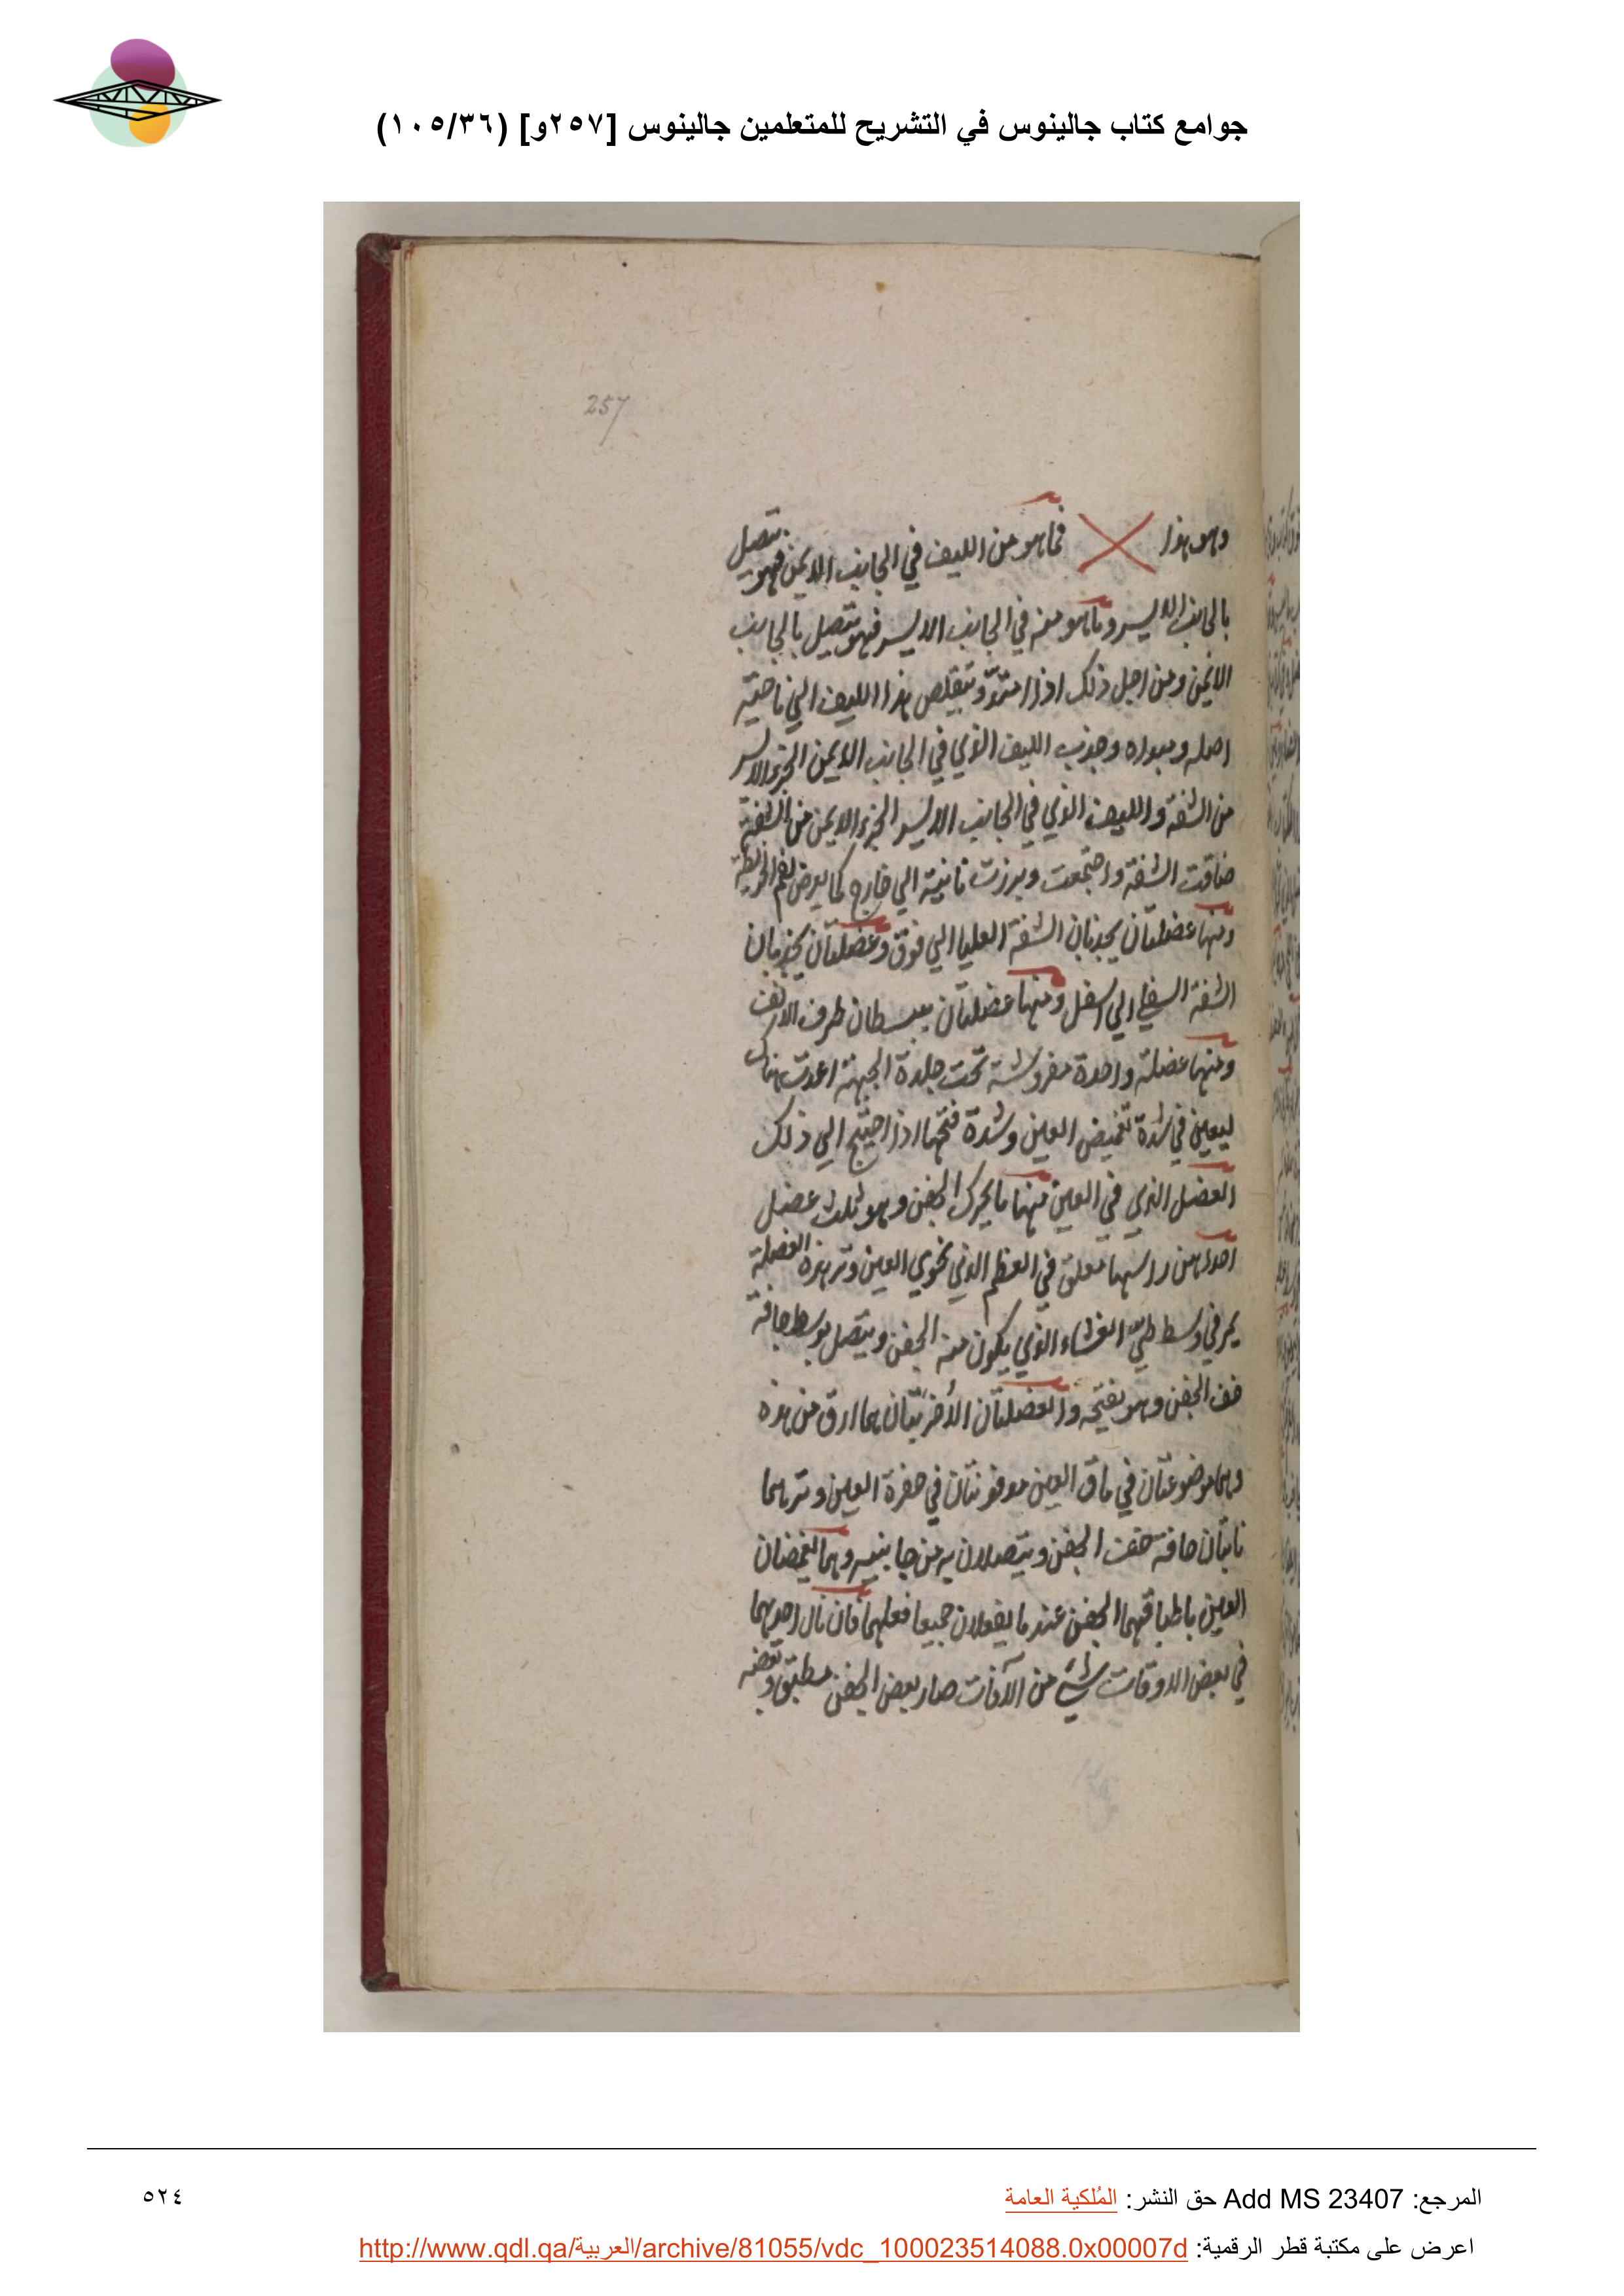 جوامع كتاب جالينوس في التشريح للمتعلمين جالينوس [٢٥٧و] (١٠٥/٣٦)
257
وهو هذا فما هو من الليف في الجانب الايمن فهو يتصل
بالجانب الايسر وما هو منه في الجانب الايسر فهو يتصل بالجانب
الايمن ومن اجل ذلك اذا امتد وتقلص هذا الليف الي ناحية
اصله ومبداه وجذب الليف الذي في الجانب الايمن الجزء الايسر
من الشفة والليف الذي في الجانب الايسر الجزء الايمن من الشفة
ضاقت الشفة واجتمعت وبرزت ناتية الي خارج كما يعرض لفم الخريطة
ومنها عضلتان يجذبان الشفة العليا الي فوق وعضلتان يجذبان
الشفة السفلي الي اسفل ومنها عضلتان يبسطان طرف الانف
ومنها عضلة واحدة مفروشة تحت جلدة الجبهة اعدت هناك
ليعين في شدة تغميض العين وشدة فتحها اذا احتيج الي ذلك
العضل الذي في العين منها ما يحرك الجفن وهو ثلث عضل
احداهن راسها معلق في العظم الذي يحوي العين وتر هذه العضلة
يمر في وسط طي الغشاء الذي يكون منه الجفن ويتصل بوسط حافة
الجفن وهو يفتحه والعضلتان الأخريتان هما ارق من هذه
وهما موضوعتان في ماق العين مدفونتان في حفرة العين وترهما
ناتيان حافة الجفن ويتصلان به من جانبيه وهما يغمضان
العين باطباقهما الجفن عند ما يفعلان جميعا فعلهما فان نال احديهما
في بعض الاوقات شيء من الآفات صار بعض الجفن مطبق وبعضه
المرجع: Add MS 23407 حق النشر: المُلكية العامة
٥٢٤
اعرض على مكتبة قطر الرقمية: http://www.qdl.qa/العربية/archive/81055/vdc_100023514088.0x00007d